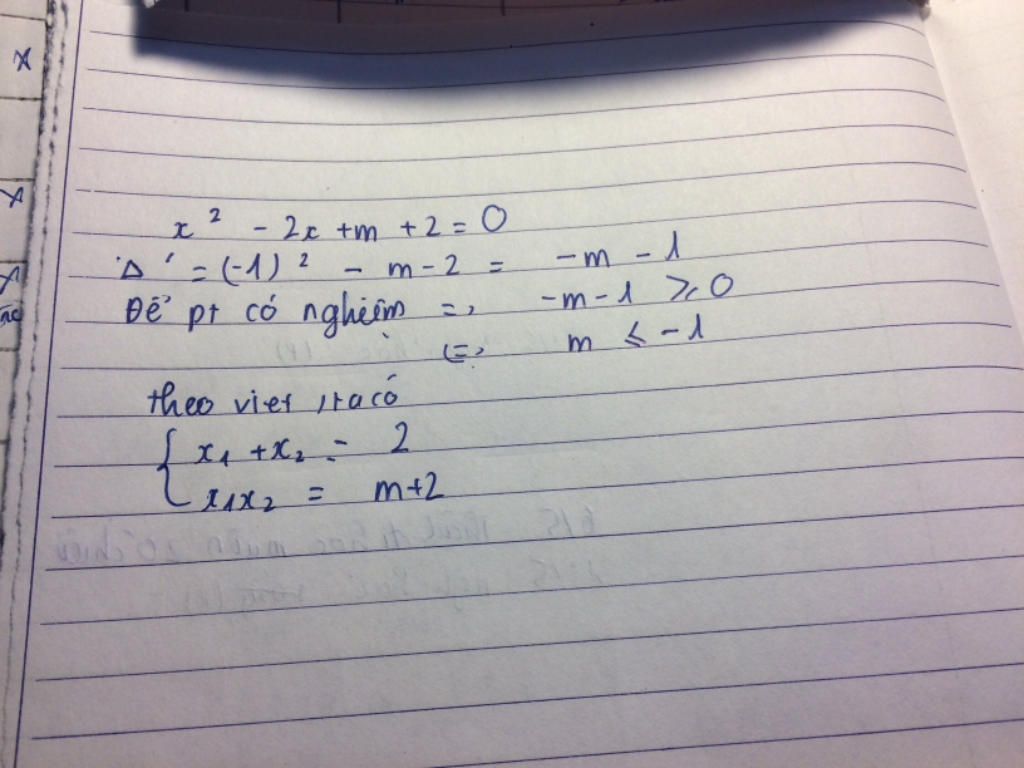 x² - 2x + m + 2 = 0
Δ' = (-1)² - m - 2 = -m - 1
Để pt có nghiệm => -m - 1 ⩾ 0
<=> m ⩽ -1
theo viet ta có
{ x₁ + x₂ = 2
x₁x₂ = m + 2